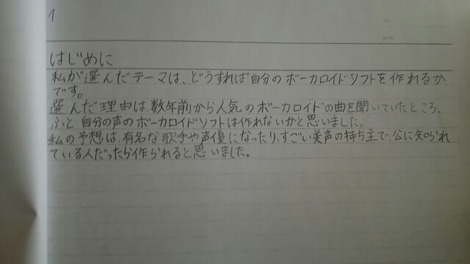 1
はじめに
私が選んだテーマは、どうすれば自分のボーカロイドソフトを作れるか
です。
選んだ理由は、数年前から人気のボーカロイドの曲を聞いていたところ、
ふと自分の声のボーカロイドソフトは作れないかと思いました。
私の予想は、有名な歌手や声優になったり、すごい美声の持ち主で、公に知られ
ている人だったら作られると思いました。